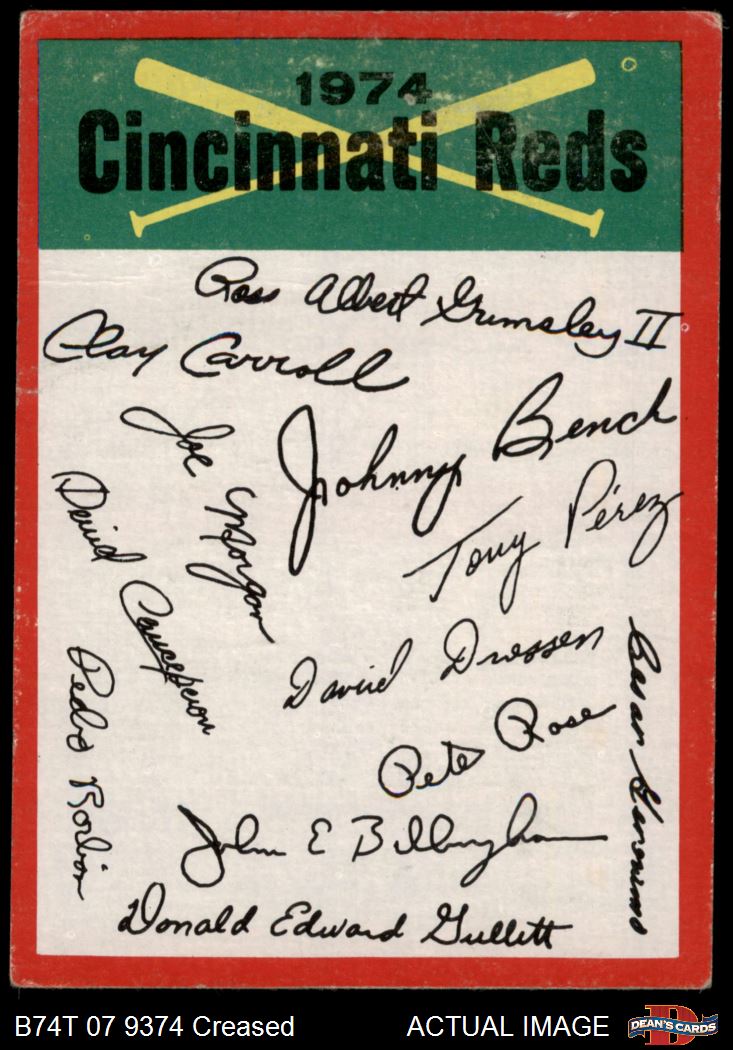 1974
Cincinnati Reds
Ross Albert Grimsley II
Clay Carroll
Johnny Bench
Joe Morgan
Tony Pérez
David Concepcion
David Driessen
Pete Rose
Cesar Geronimo
Pedro Borbón
John E Billingham
Donald Edward Gullett
B74T 07 9374 Creased
ACTUAL IMAGE
DEAN'S CARDS